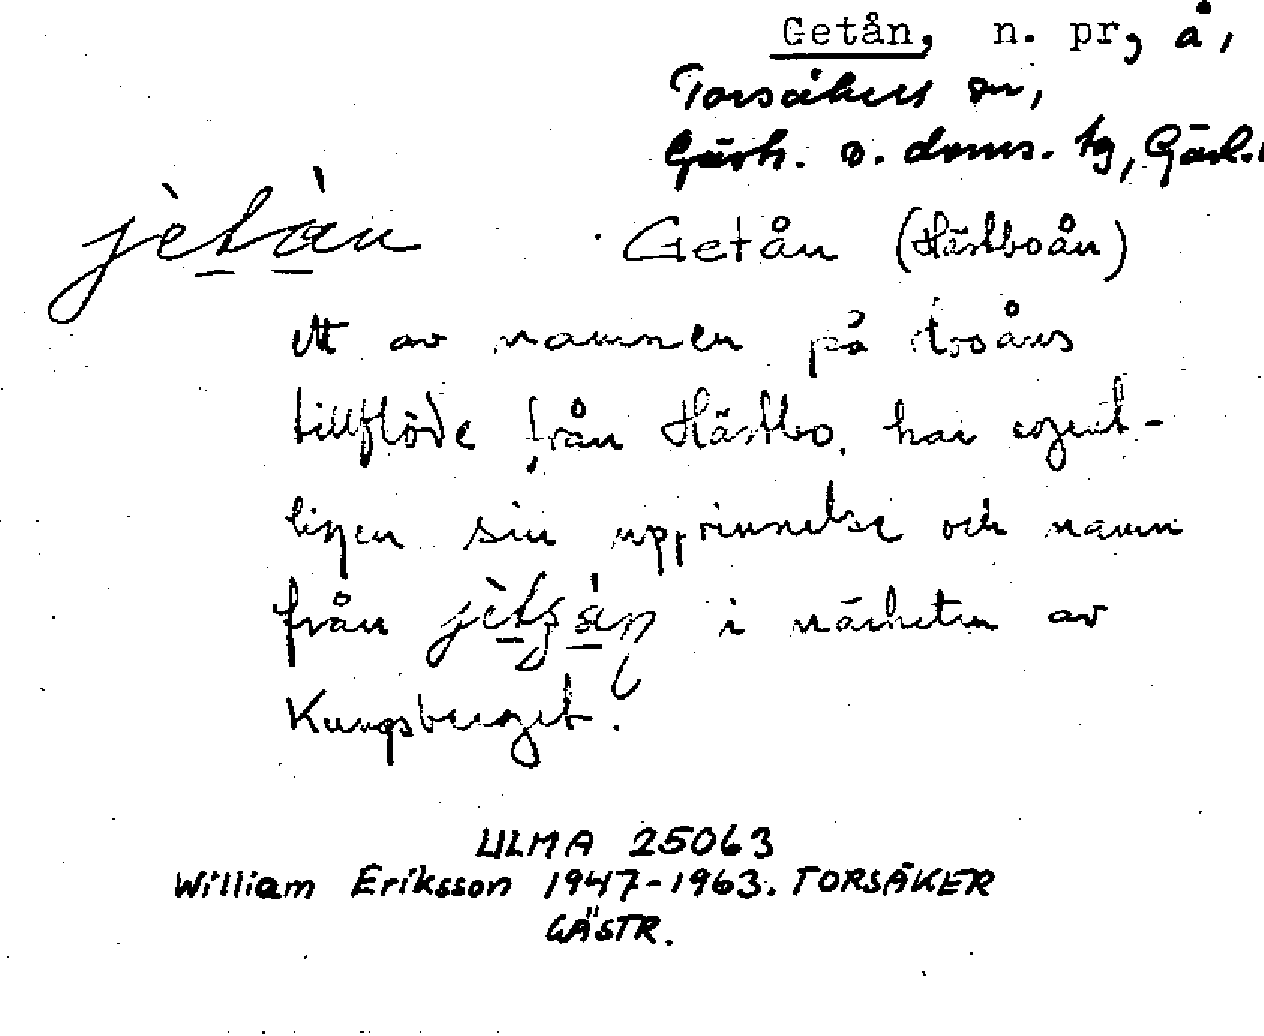 Getån, n. pr, å,
Torsåkers sn,
Gästr. ö. doms. tg, Gävl.
jètàn Getån (Hästboån)
ett av namnen på
tillflöde från Hästbo, har egent-
ligen sin upprinnelse och namn
från i närheten av
Kungsberget.
ULMA 25063
William Eriksson 1947-1963. TORSÅKER
GÄSTR.